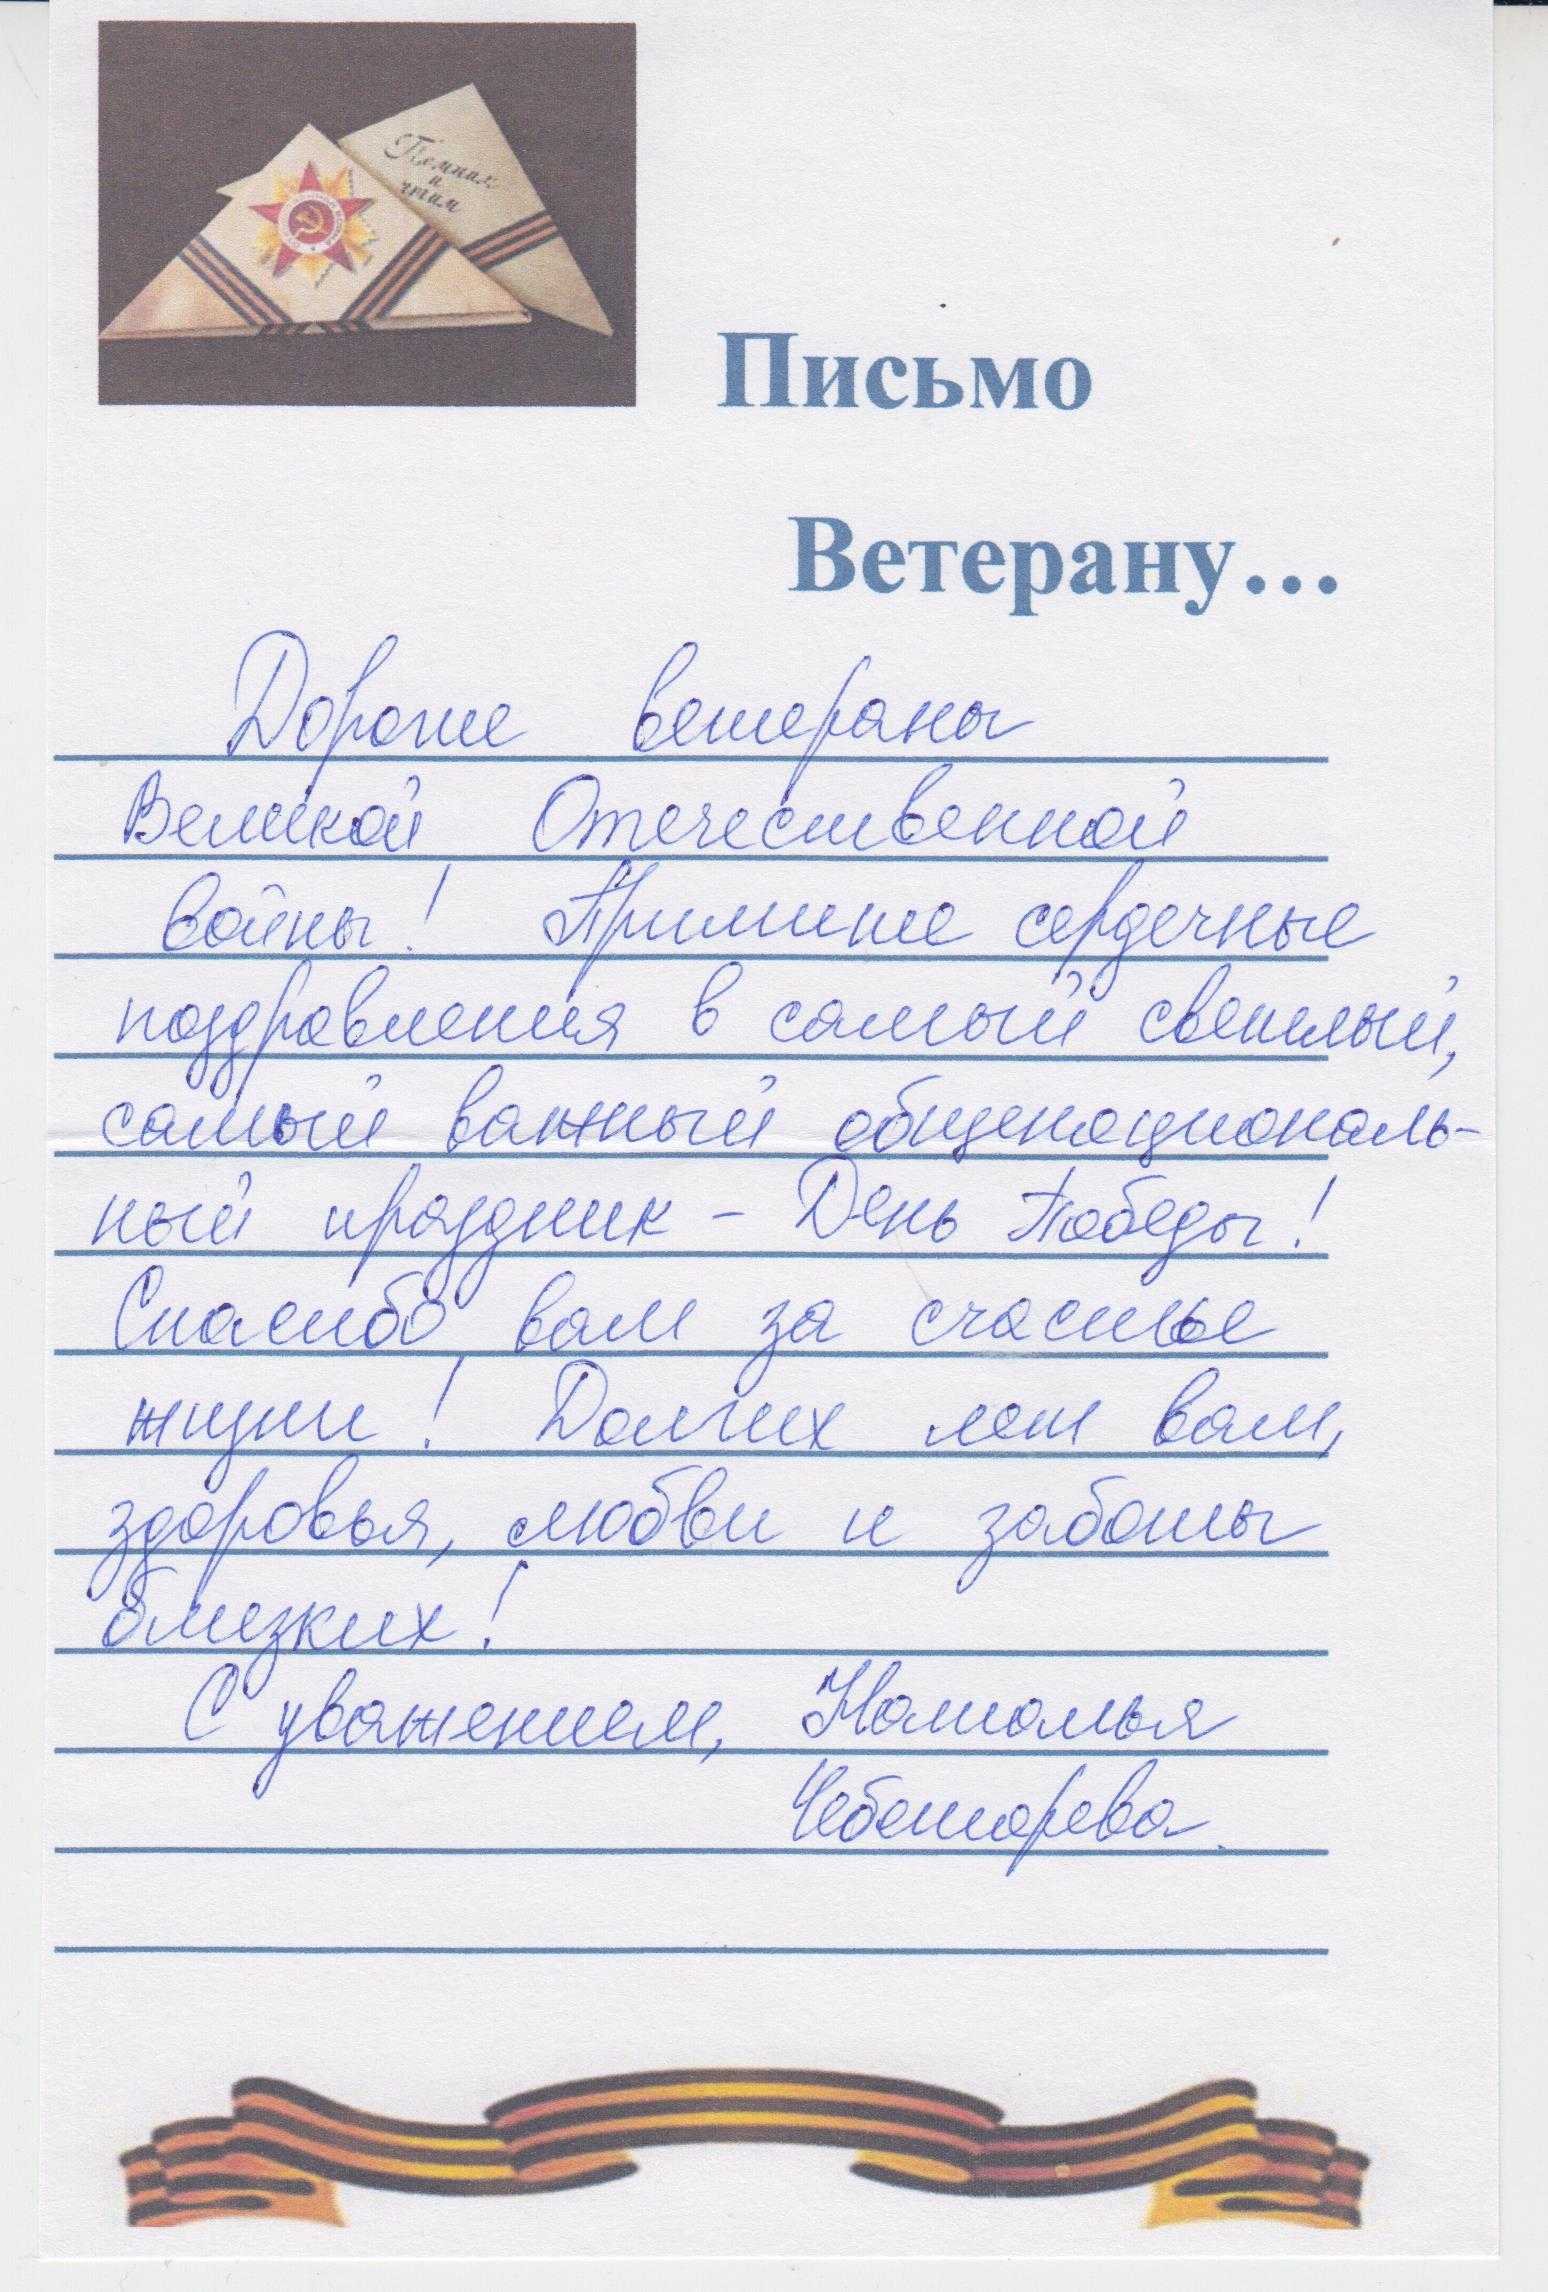 Помним
и
чтим
Письмо
Ветерану...
Дорогие ветераны
Великой Отечественной
войны! Примите сердечные
поздравления в самый светлый,
самый важный общенациональ-
ный праздник - День Победы!
Спасибо вам за счастье
жизни! Долгих лет вам,
здоровья, любви и заботы
близких!
С уважением, Наталья
Чебетарева.